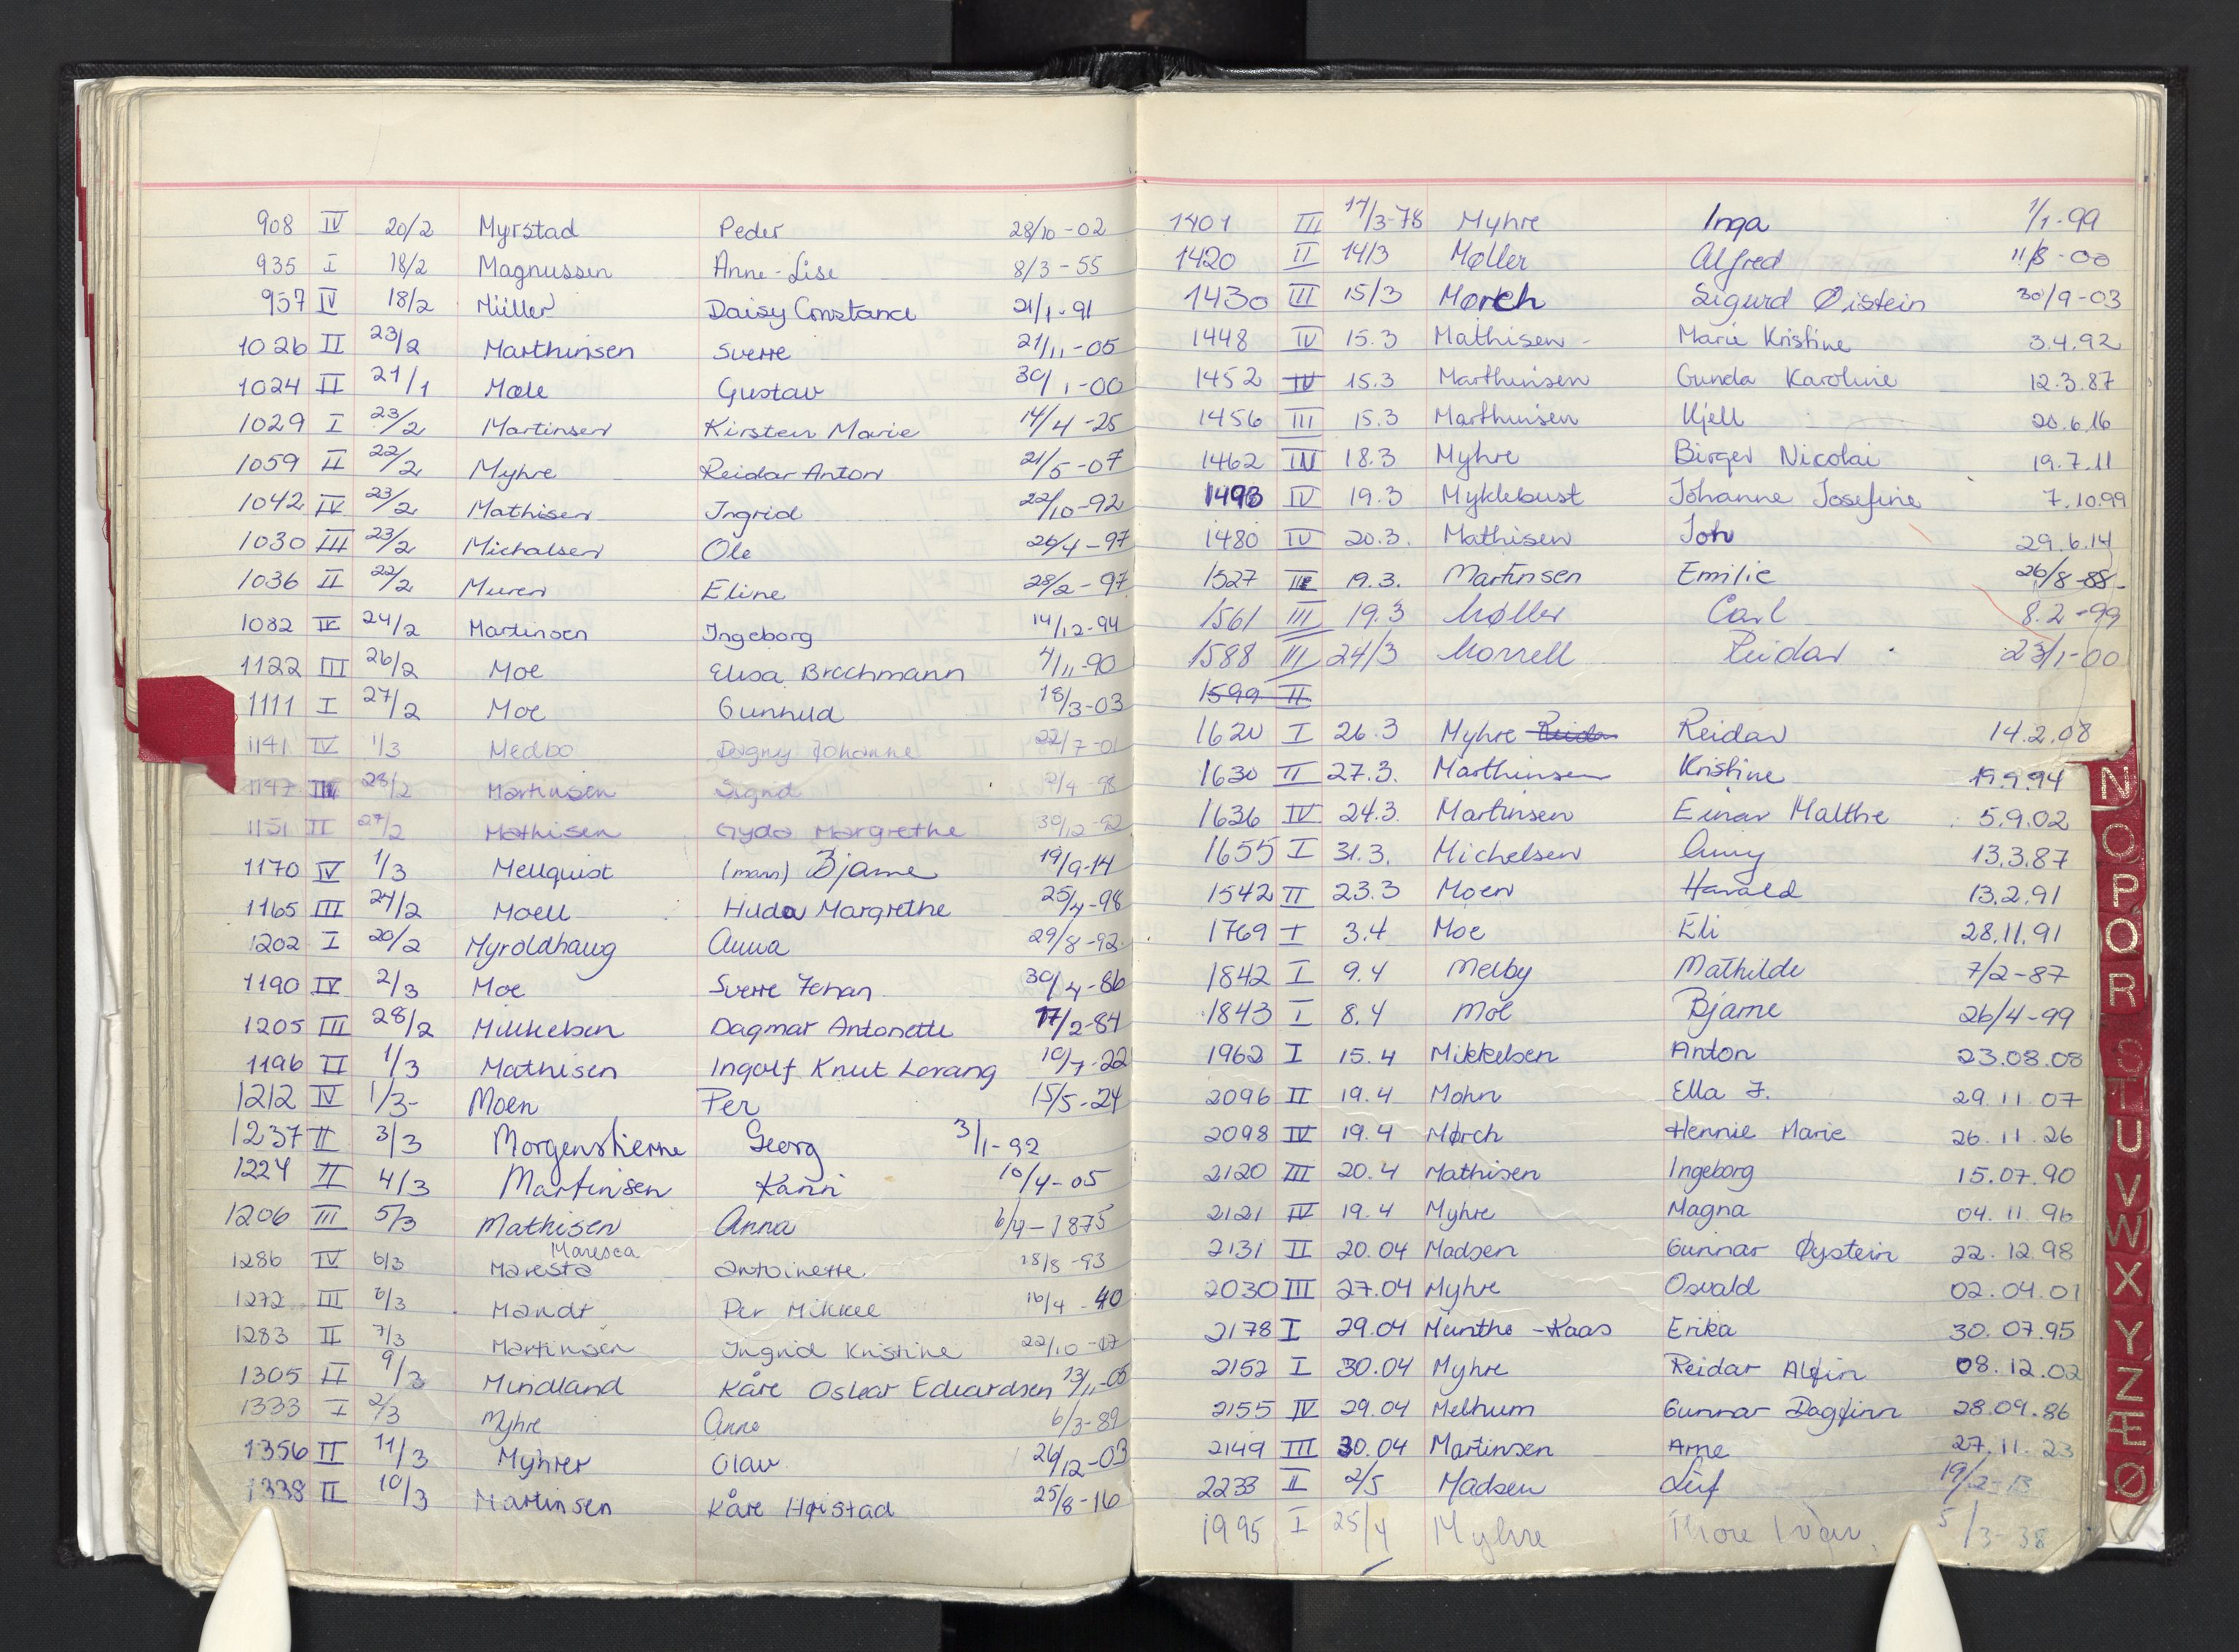 908 IV 20/2 Myrstad Peder 28/10-02
935 I 18/2 Magnussen Anne-Lise 8/3-55
957 IV 18/2 Müller Daisy Constance 21/1-91
1026 II 23/2 Marthinsen Sverre 21/11-05
1024 II 21/1 Mæle Gustav 30/1-00
1029 I 23/2 Martinsen Kirsten Marie 14/4-25
1059 II 22/2 Myhre Reidar Anton 21/5-07
1042 IV 23/2 Mathisen Ingrid 22/10-92
1030 III 23/2 Michalsen Ole 26/4-97
1036 II 22/2 Muren Eline 28/2-97
1082 IV 24/2 Martinsen Ingeborg 14/12-94
1122 III 26/2 Moe Elisa Brochmann 4/11-90
1111 I 27/2 Moe Gunhild 18/3-03
1141 IV 1/3 Medbo Dagny Johanne 22/7-01
1147 23/2 Martinsen Sigrid 2/4-98
1151 II 27/2 Mathisen Gyda Margrethe 30/12-92
1170 IV 1/3 Mellquist (mann) Bjarne 19/9-14
1165 III 24/2 Moell Hilda Margrethe 25/4-98
1202 I 20/2 Myroldhaug Anna 29/8-92
1190 IV 2/3 Moe Sverre Johan 30/4-86
1205 III 28/2 Mikkelsen Dagmar Antonette 17/2-84
1196 II 1/3 Mathisen Ingolf Knut Lorang 10/7-22
1212 IV 1/3- Moen Per 15/5-24
1237 II 3/3 Morgenstierne Georg 3/1-92
1224 II 4/3 Martinsen Karin 10/4-05
1206 III 5/3 Mathisen Anna 6/4-1875
Maresca
1286 IV 6/3 Maresta Antoinette 18/8-93
1272 III 6/3 Mandt Per Mikkel 16/4-40
1283 II 7/3 Martinsen Ingrid Kristine 22/10-07
1305 II 9/3 Mindland Kåre Oskar Edvardsen 13/11-05
1333 I 2/3 Myhre Anna 6/3-89
1356 II 11/3 Myhrer Olav 26/12-03
1338 II 10/3 Martinsen Kåre Høistad 25/8-16
1401 III 17/3-78 Myhre Inga 1/1-99
1420 II 14/3 Møller Alfred 11/8-00
1430 III 15/3 Mørch Sigurd Øistein 30/9-03
1448 IV 15.3 Mathisen - Marie Kristine 3.4.92
1452 IV 15.3 Marthinsen Gunda Karoline 12.3.87
1456 III 15.3 Marthinsen Kjell 20.6.16
1462 III 18.3 Myhre Birger Nicolai 19.7.11
1493 IV 19.3 Myklebust Johanne Josefine 7.10.99
1480 IV 20.3. Mathisen Joh 29.6.14
1527 19.3. Martinsen Emilie 26/8-88-
1561 III 19.3 Møller Carl 8.2-99
1588 III 24/3 Morrell Reidar 23/1-00
1599 II
1620 I 26.3 Myhre Reidar Reidar 14.2.08
1630 II 27.3. Marthinsen Kristine 19.9.94
1636 IV 24.3. Martinsen Einar Malthe 5.9.02
1655 I 31.3. Michelsen Amy 13.3.87
1542 II 23.3 Moen Harald 13.2.91
1769 I 3.4 Moe Eli 28.11.91
1842 I 9.4 Melby Mathilde 7/2-87
1843 I 8.4 Moe Bjarne 26/4-99
1962 I 15.4 Mikkelsen Anton 23.08.08
2096 II 19.4 Mohn Ella J. 29.11.07
2098 IV 19.4 Mørch Hennie Marie 26.11.26
2120 III 20.4 Mathisen Ingeborg 15.07.90
2121 IV 19.4 Myhre Magna 04.11.96
2131 II 20.04 Madsen Gunnar Øystein 22.12.98
2030 III 27.04 Myhre Osvald 02.04.01
2178 I 29.04 Munthe-Kaas Erika 30.07.95
2152 I 30.04 Myhre Reidar Alfin 08.12.02
2155 IV 29.04 Melhum Gunnar Dagfinn 28.09.86
2149 III 30.04 Martinsen Arne 27.11.23
2233 II 2/5 Madsen Leif 19/2-13
1995 I 25/4 Myhre Thore Ivar 5/3-38
N
O
P
Q
R
S
T
U
V
W
X
Y
Z
Æ
Ø